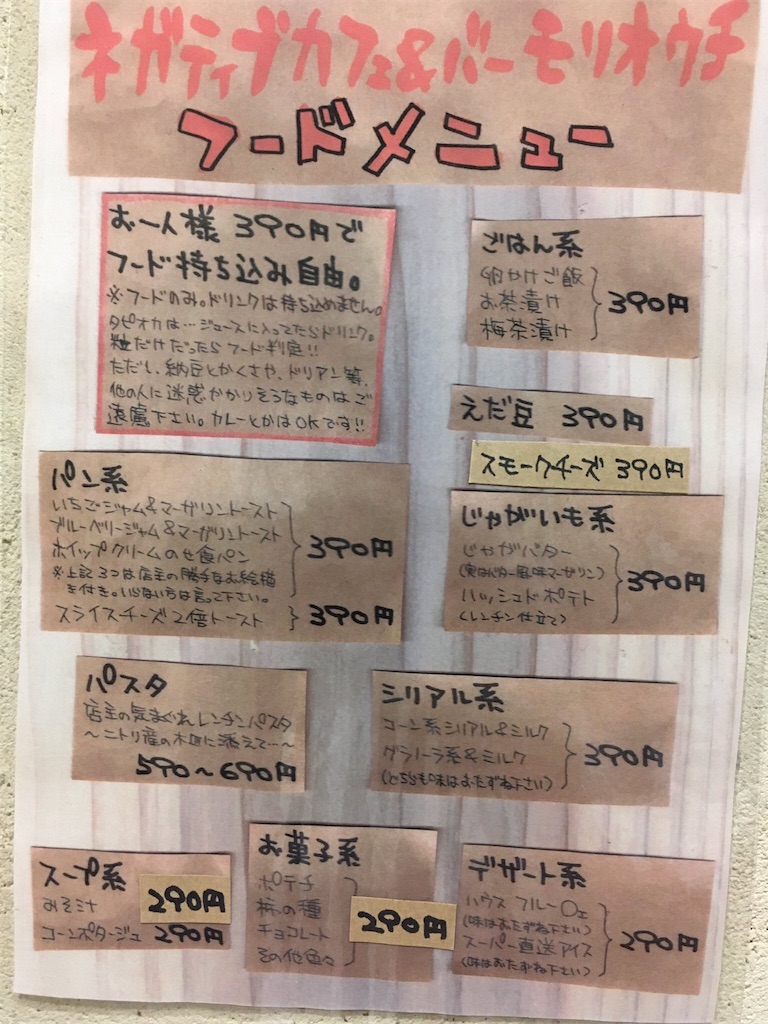 ネガティブカフェ&バーモリオウチ
フードメニュー
お一人様 390円で
フード持ち込み自由。
※フードのみ。ドリンクは持ち込めません。
タピオカは…ジュースに入ってたらドリンク。
粒だけだったらフード判定!!
ただし、納豆とかくさや、ドリアン等、
他の人に迷惑かかりそうなものはご
遠慮下さい。カレーとかはOKです!!
ごはん系
卵かけご飯
お茶漬け
梅茶漬け
390円
えだ豆 390円
スモークチーズ 390円
パン系
いちごジャム&マーガリントースト
ブルーベリージャム&マーガリントースト
ホイップクリームのせ食パン
390円
※上記3つは店主の勝手なお絵描
き付き。いらない方は言って下さい。
スライスチーズ2倍トースト 390円
じゃがいも系
じゃがバター
(実はバター風味マーガリン)
ハッシュドポテト
(レンチン仕立て)
390円
パスタ
店主の気まぐれレンチンパスタ
〜ニトリ産の木皿に添えて…〜
590〜690円
シリアル系
コーン系シリアル&ミルク
グラノーラ系&ミルク
(どちらも味はおたずね下さい)
390円
スープ系
みそ汁 290円
コーンポタージュ 290円
お菓子系
ポテチ
柿の種
チョコレート
その他色々
290円
デザート系
ハウス フルーチェ
(味はおたずね下さい)
スーパー直送アイス
(味はおたずね下さい)
290円